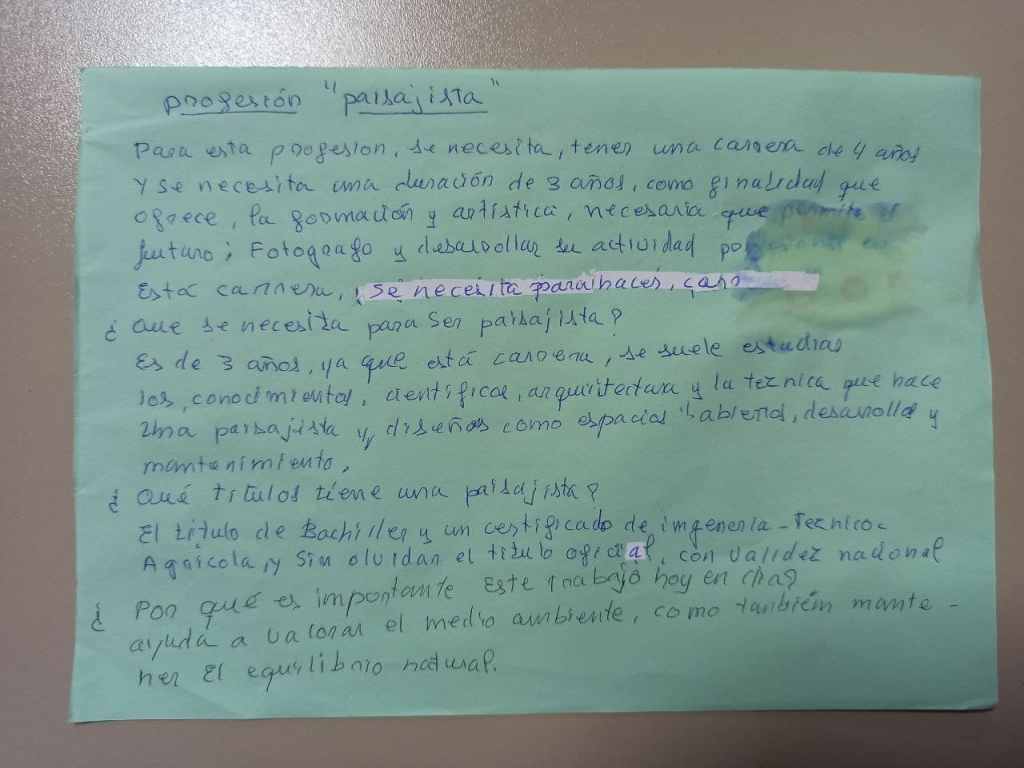 profesión "paisajista"
Para esta profesion, se necesita, tener una carrera de 4 años
Y se necesita una duración de 3 años, como finalidad que
ofrece, la formación y artística, necesaria que permite el
futuro; Fotografo y desarrollar su actividad
Está carrera, se necesita para hacer, caro
¿ Que se necesita para Ser paisajista?
Es de 3 años, ya que está carrera, se suele estudiar
los, conocimientos, cientificos, arquitectura y la tecnica que hace
una paisajista y, diseños como espacios abiertos, desarrollo y
mantenimiento,
¿ Qué titulos tiene una paisajista?
El título de Bachiller y un certificado de imgenería-Tecnico-
Agrícola, y Sin olvidar el título oficial, con validez nacional
¿ Por qué es importante Este trabajo hoy en dia?
ayuda a valorar el medio ambiente, como también mante-
ner El equilibrio natural.